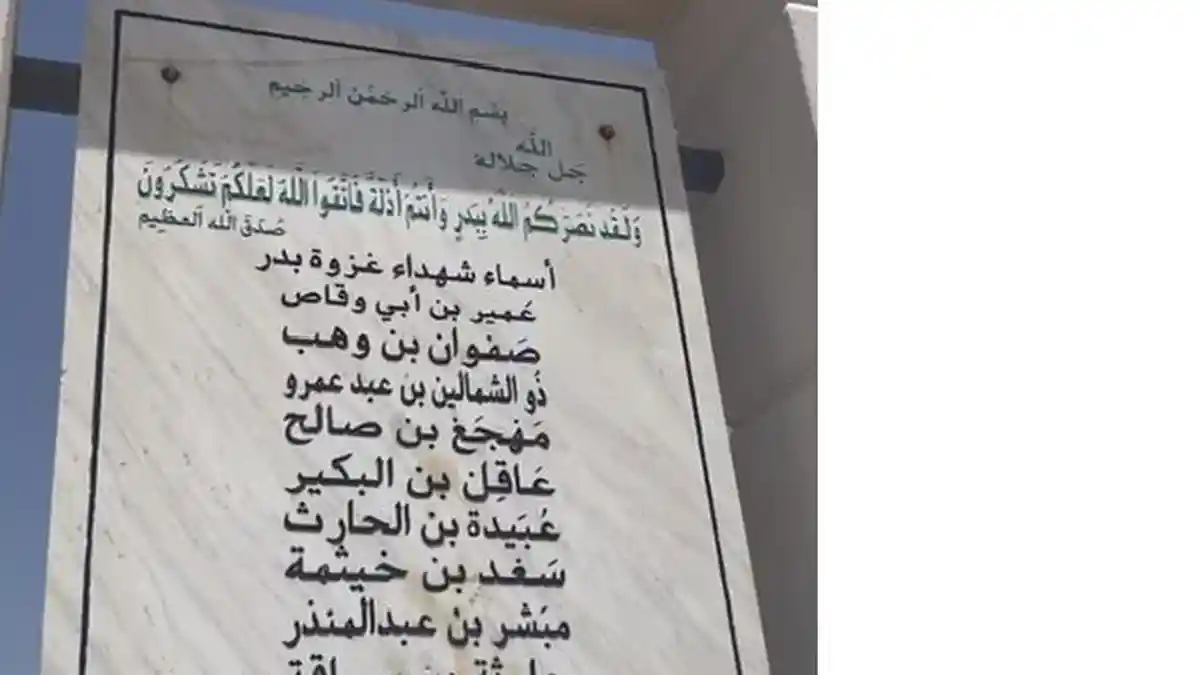 بسم الله الرحمن الرحيم
الله
جل جلاله
وَلَقَدْ نَصَرَكُمُ اللَّهُ بِبَدْرٍ وَأَنْتُمْ أَذِلَّةٌ فَاتَّقُوا اللَّهَ لَعَلَّكُمْ تَشْكُرُونَ
صَدَقَ الله العظيم
أسماء شهداء غزوة بدر
عُمير بن أبي وقاص
صَفوان بن وهب
ذُو الشمالين بن عبد عمرو
مَهجَع بن صالح
عَاقِل بن البكير
عُبَيدة بن الحارث
سَعد بن خيثمة
مبَشر بن عبدالمنذر